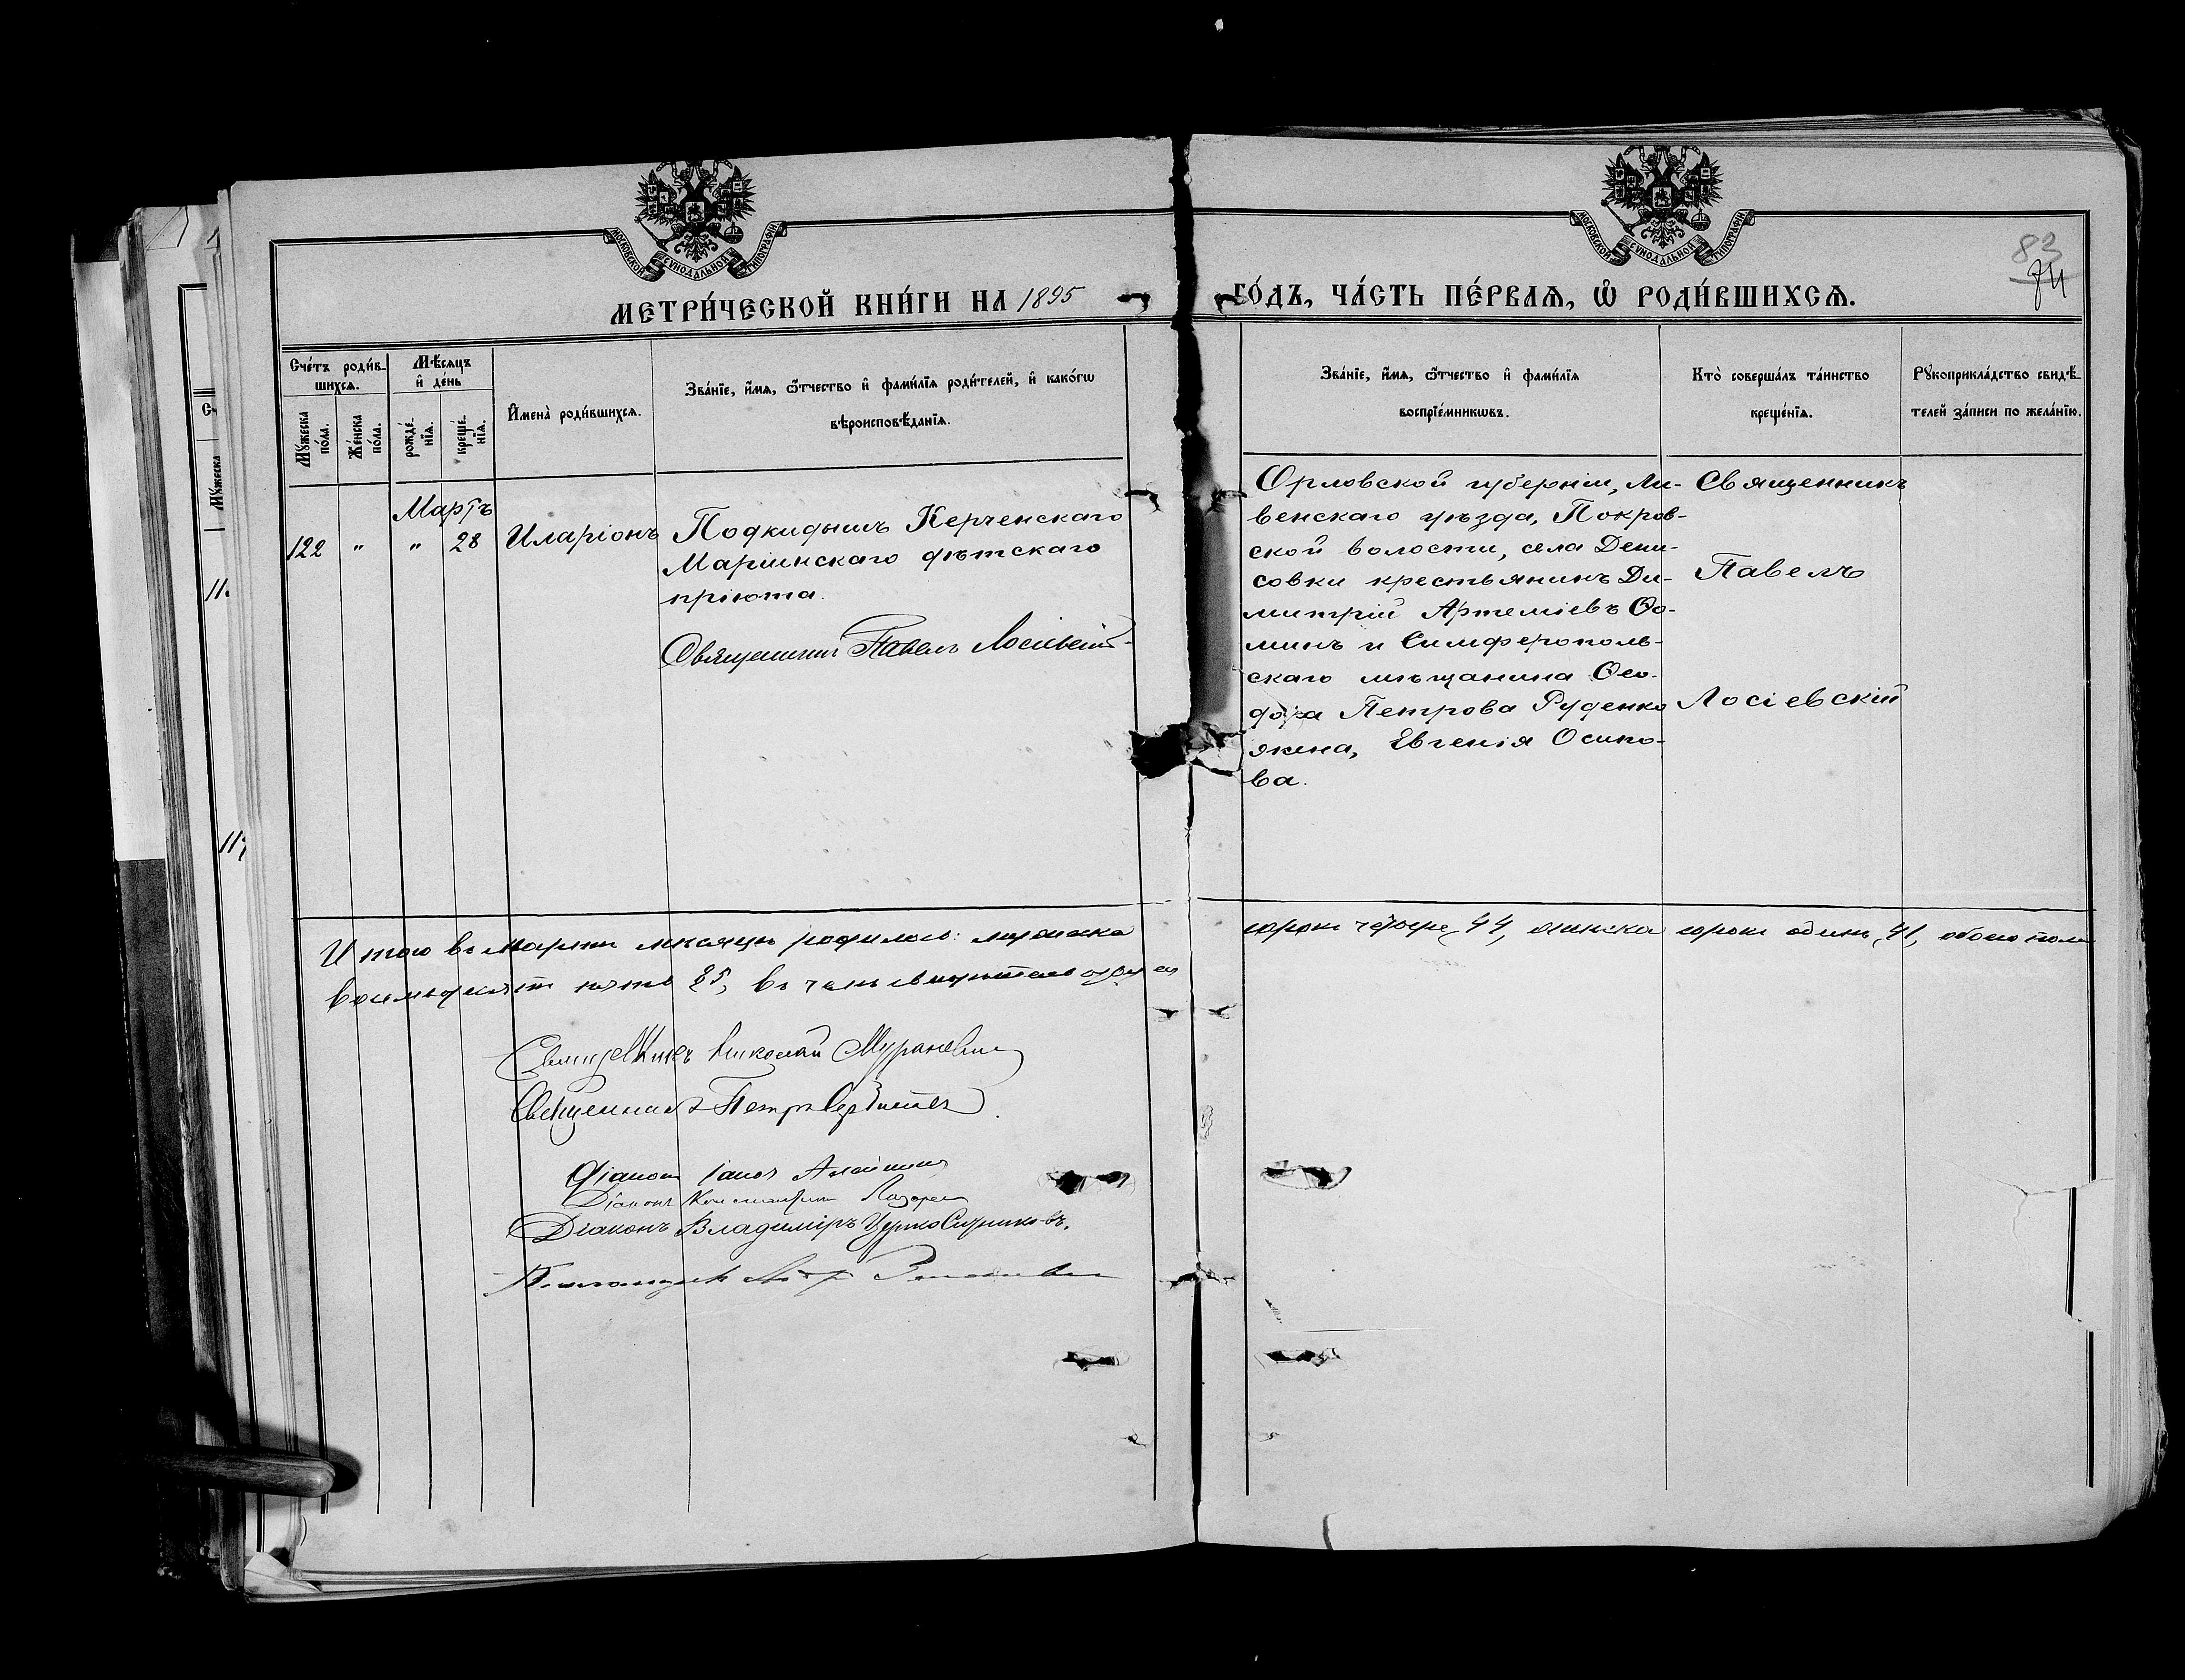 МОСКОВСКОЙ СѴНОДАЛЬНОЙ ТИПОГРАФІИ
МОСКОВСКОЙ СѴНОДАЛЬНОЙ ТИПОГРАФІИ
83
84
МЕТРИ́ЧЕСКОЙ КНИ́ГИ НА 1895
ГО́ДЪ, ЧА́СТЬ ПЕ́РВАѦ, Ѡ҆ РОДИ́ВШИХСѦ.
Сче́тъ роди́в-
шихсѧ.
Мꙋ́жеска по́ла.
Же́нска по́ла.
Мѣ́сѧцъ
и҆ де́нь
рожде́-
нїѧ.
креще́-
нїѧ.
И҆мена̀ роди́вшихсѧ.
Зва́нїе, и҆́мѧ, ѻ҆́тчество и҆ фами́лїѧ роди́телей, и҆ како́гѡ
вѣроисповѣ́данїѧ.
Зва́нїе, и҆́мѧ, ѻ҆́тчество и҆ фами́лїѧ
воспрїе́мникѡвъ.
Кто̀ соверша́лъ та́инство
креще́нїѧ.
Рꙋкоприкла́дство свидѣ́-
телей за́писи по жела́нїю.
Мартъ
122 " " 28 Иларіонъ
Подкидышъ Керченскаго
Маріинскаго дѣтскаго
пріюта.
Священникъ Павелъ Лосіевскій
Орловской губерніи, Ли-
венскаго уѣзда, Покров-
ской волости, села Дени-
совки крестьянинъ Ди-
митрій Артеміевъ Ѳо-
минъ и Симферополь-
скаго мѣщанина Ѳео-
дора Петрова Руденко
жена, Евгенія Осипо-
ва.
Священникъ
Павелъ
Лосіевскій
Итого въ Мартѣ мѣсяцѣ родилось: мужеска
сорокъ четыре, 44, женска сорокъ одинъ, 41, обоего пола
восемьдесятъ пять 85, въ чемъ
Священникъ Николай
Священникъ Петръ
Діаконъ
Діаконъ Константинъ
Діаконъ Владиміръ
Псаломщикъ
11
117